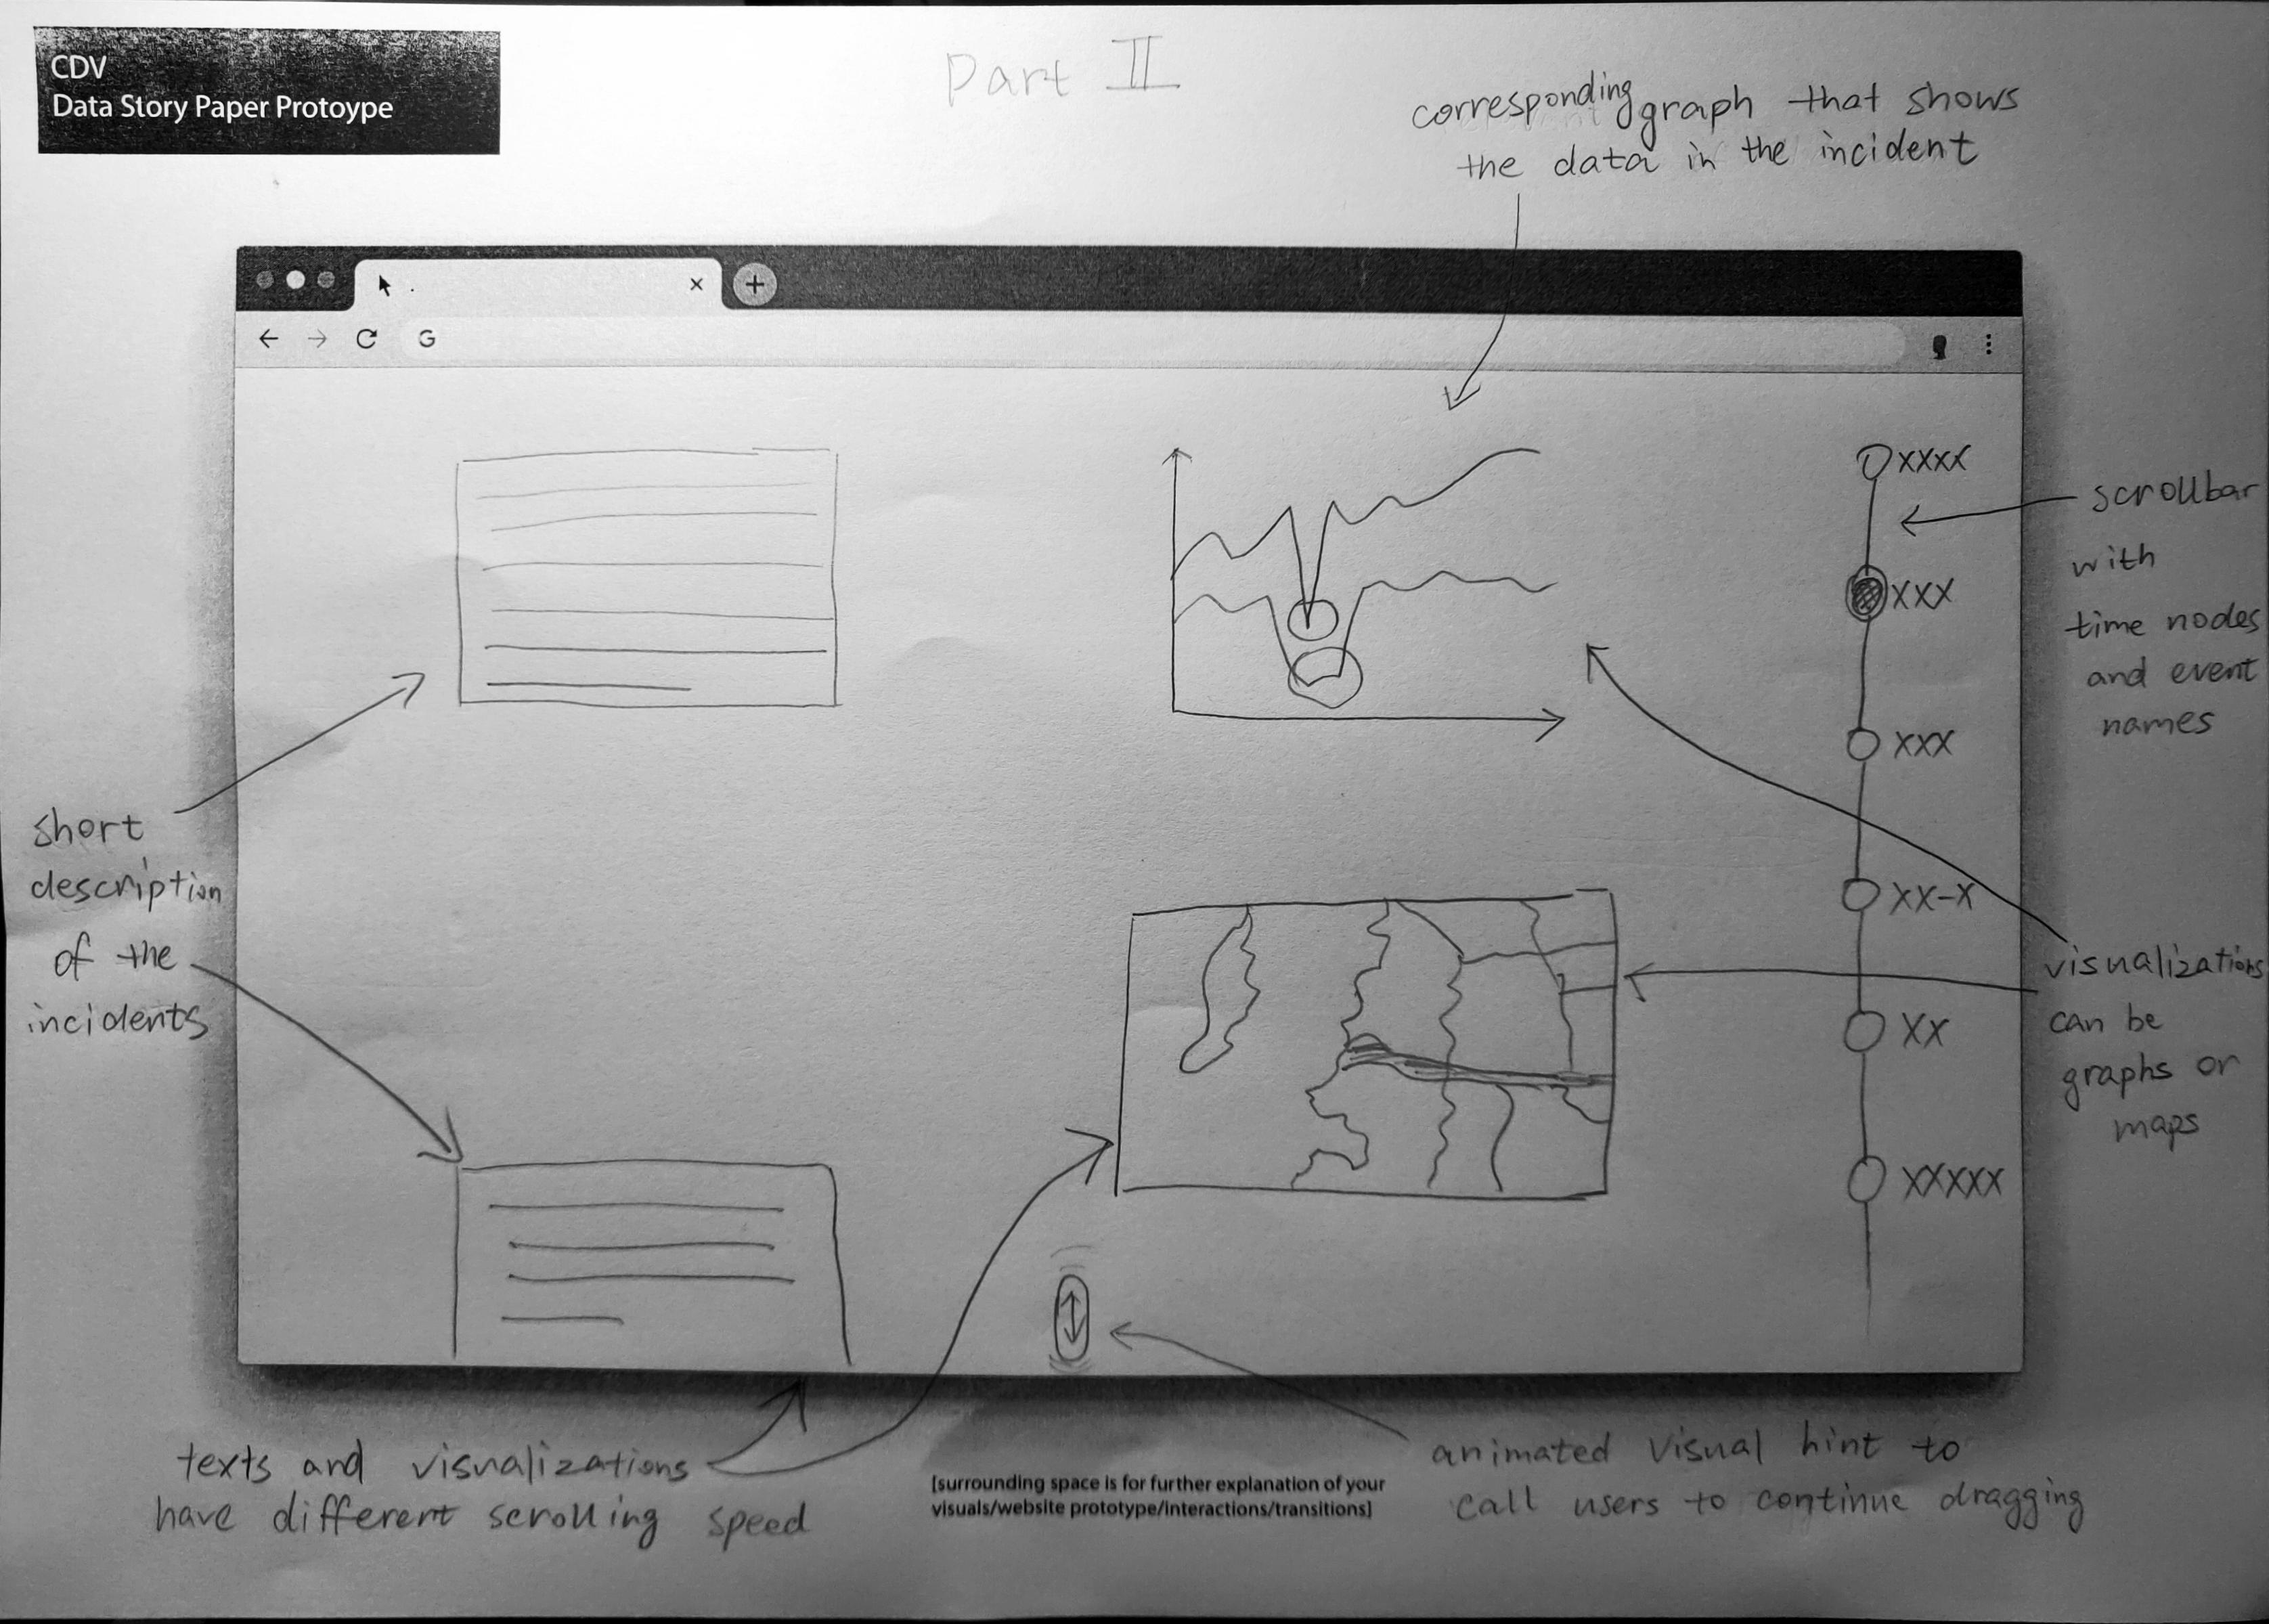 CDV
Data Story Paper Protoype
Part II
corresponding graph that shows
the data in the incident
G
XXXX
scrollbar
with
time nodes
and event
names
XXX
XXX
short
description
of the
incidents
XX-X
visualizations
can be
graphs or
maps
XX
XXXXX
texts and visualizations
have different scrolling speed
[surrounding space is for further explanation of your
visuals/website prototype/interactions/transitions]
animated visual hint to
call users to continue dragging